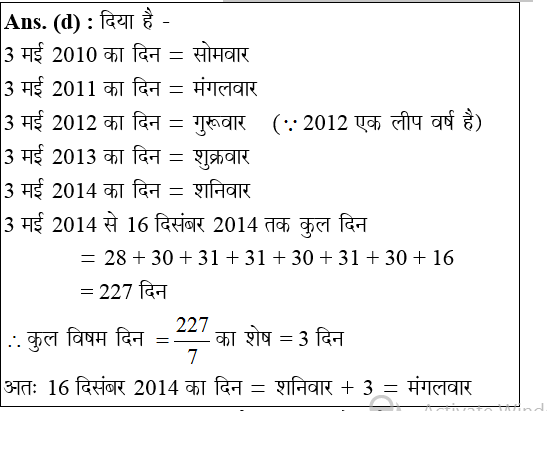 Ans. (d) : दिया है -
3 मई 2010 का दिन = सोमवार
3 मई 2011 का दिन = मंगलवार
3 मई 2012 का दिन = गुरूवार (∵ 2012 एक लीप वर्ष है)
3 मई 2013 का दिन = शुक्रवार
3 मई 2014 का दिन = शनिवार
3 मई 2014 से 16 दिसंबर 2014 तक कुल दिन
= 28 + 30 + 31 + 31 + 30 + 31 + 30 + 16
= 227 दिन
∴ कुल विषम दिन = 227/7 का शेष = 3 दिन
अतः 16 दिसंबर 2014 का दिन = शनिवार + 3 = मंगलवार